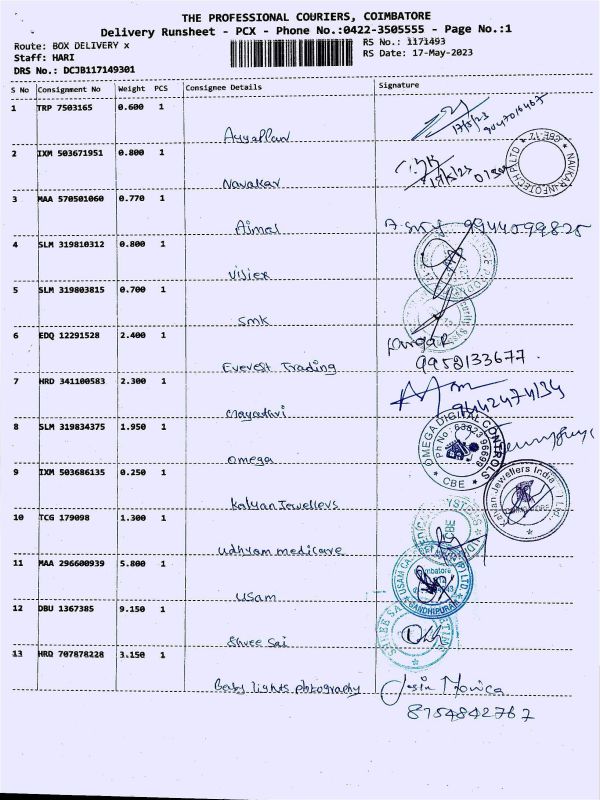 THE PROFESSIONAL COURIERS, COIMBATORE
Delivery Runsheet - PCX - Phone No.:0422-3505555 - Page No.:1
Route: BOX DELIVERY x
RS No.: 1171493
Staff: HARI
RS Date: 17-May-2023
DRS No.: DCJB117149301
S No Consignment No Weight PCS Consignee Details Signature
1 TRP 7503165 0.600 1
Ayyappan 17/5/23
2 IXM 503671951 0.800 1
Navakar NAVKAR INFOTECH (P) LTD CBE-12
3 MAA 570501060 0.770 1
Ajmal 9944099825
4 SLM 319810312 0.800 1
Vijier
5 SLM 319803815 0.700 1
SMK
6 EDQ 12291528 2.400 1
Everest Trading 9952133677
7 HRD 341100583 2.300 1
mayadevi 9442474134
8 SLM 319834375 1.950 1
Omega OMEGA DIGITAL CONTROLS Ph No: 63823 96699 CBE
9 IXM 503686135 0.250 1
Kalyan Jewellers Kalyan Jewellers India Ltd.
10 TCG 179098 1.300 1
Udhyam medicare
11 MAA 296600939 5.800 1
Usam GANDHIPURAM
12 DBU 1367385 9.150 1
Shree Sai SHREE SAI
13 HRD 707878228 3.150 1
Baby lights photography Jesin Monica
8754842767